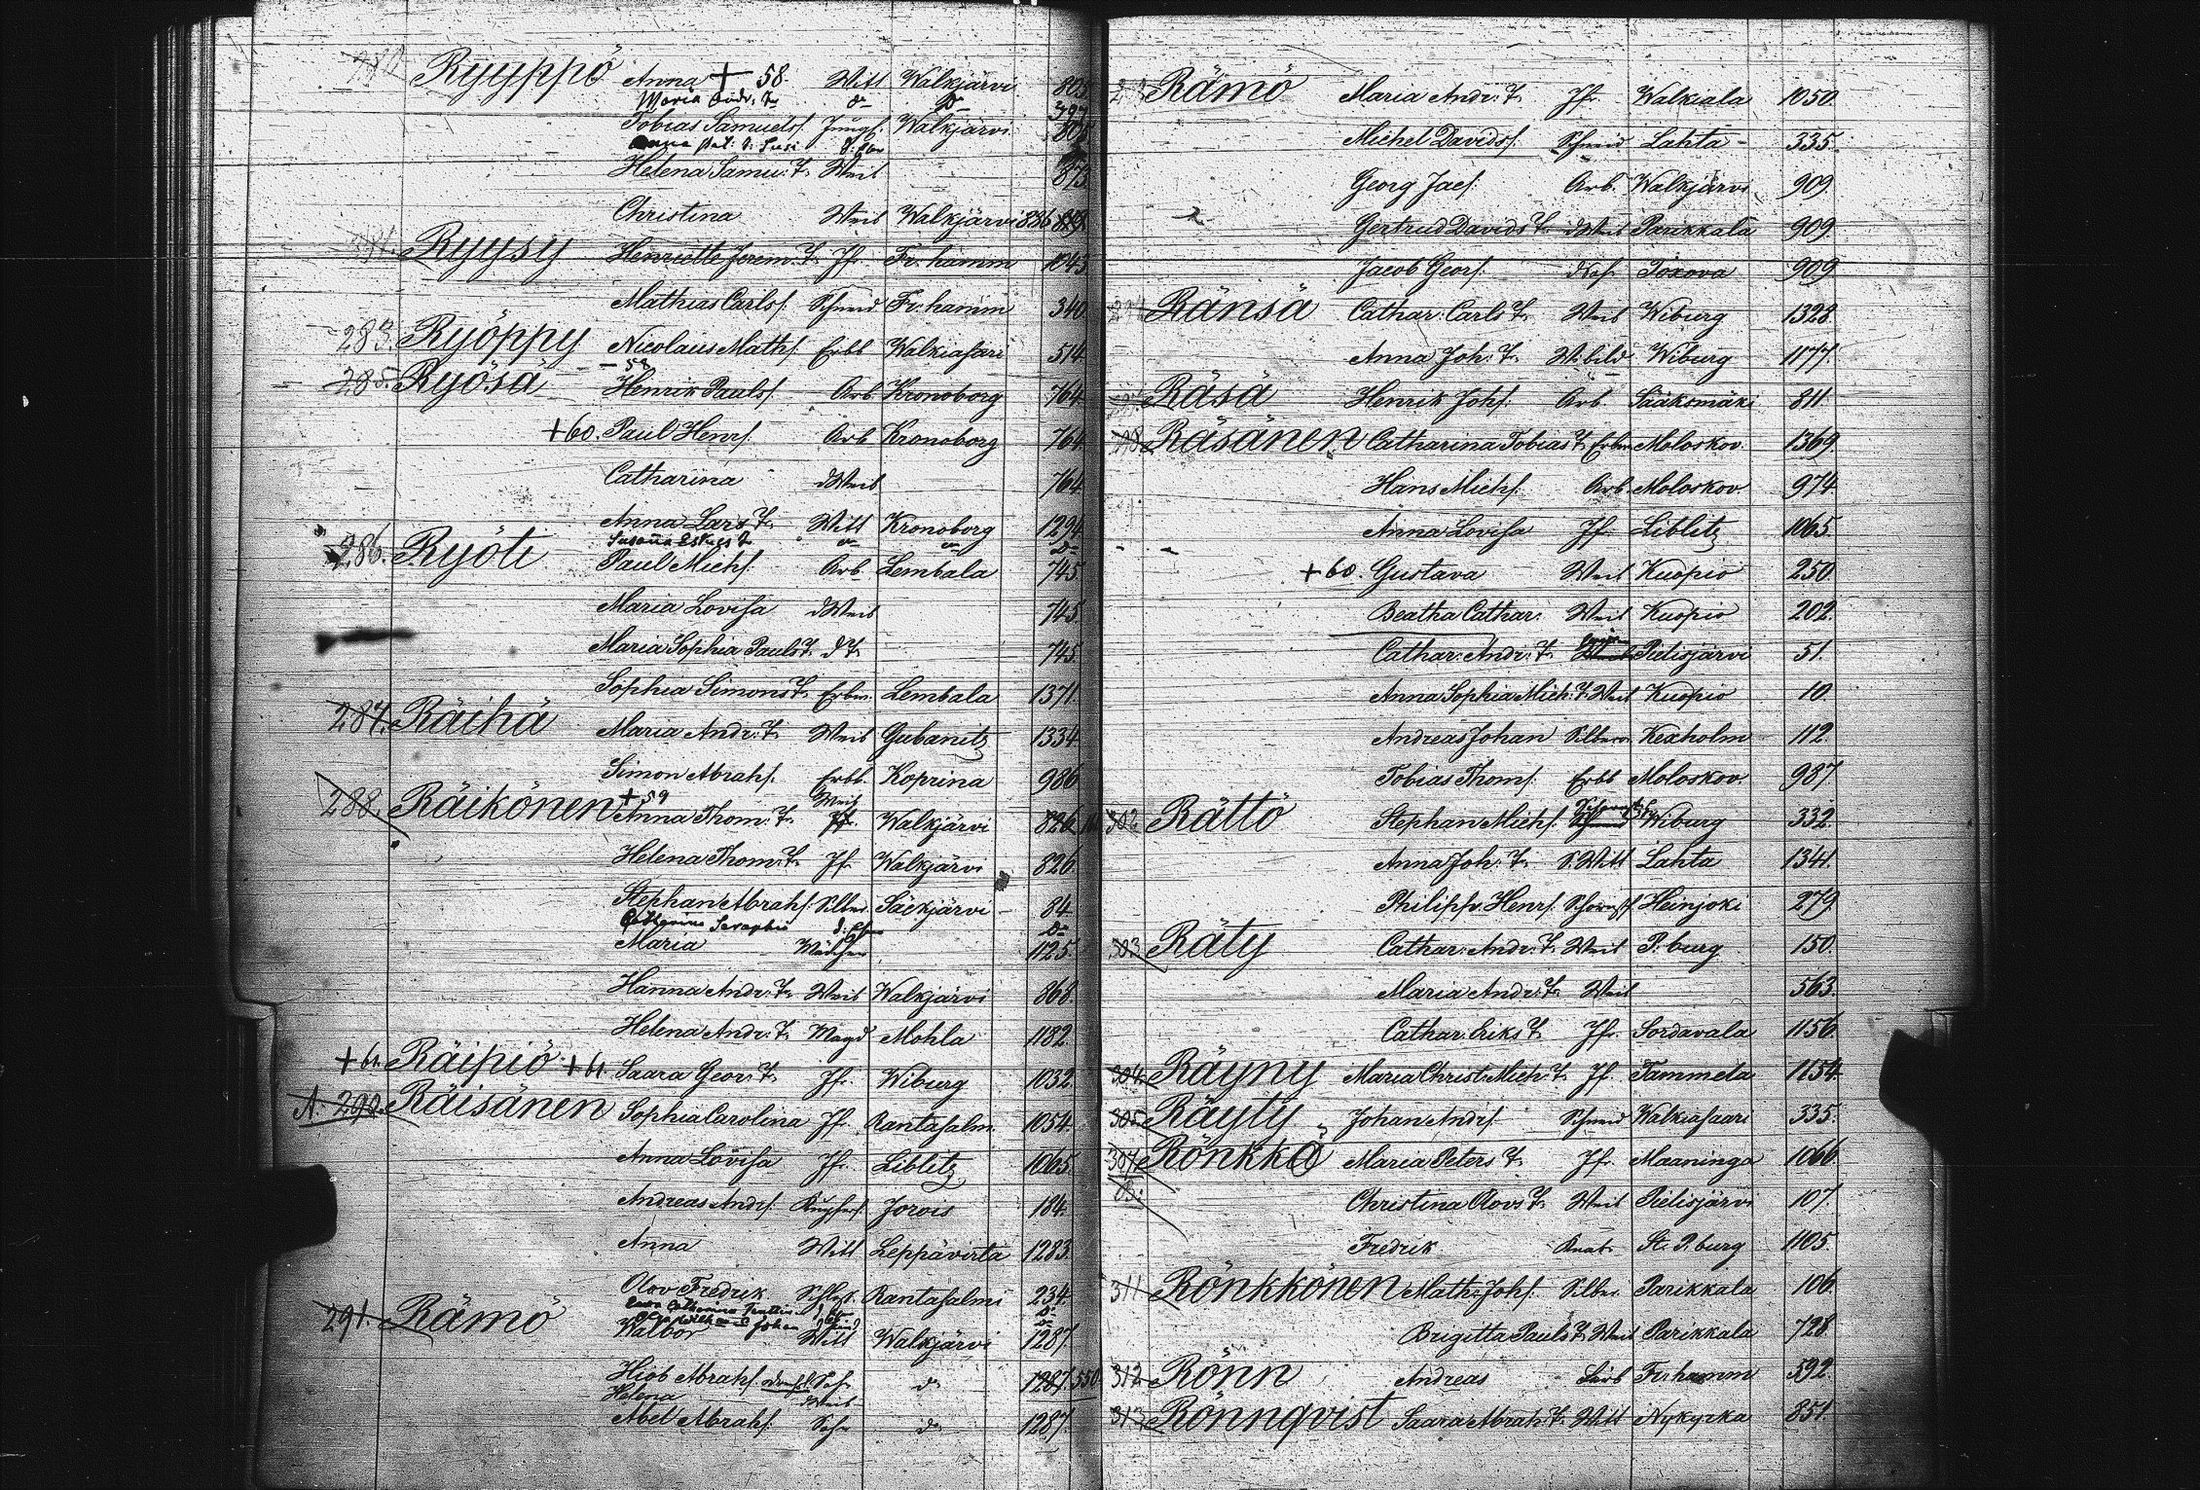 280 Ryyppö Anna + 58. Witt Walkjärvi 803
Maria Andr: T. do Do 397
Tobias Samuels. Jungf. Walkjärvi
Helena Samu: T. Weib 873
Christina Weib Walkjärvi 886
Ryysy Henriette Jerem: T. Jfr. Fr: hamm 1045
Mathias Carls. Schneid Fr: hamm 340
283. Ryöppy Nicolaus Math. Erbb Walkiasari 514
285. Ryösä Henrik Pauls. Arb Kronoborg 764
+60. Paul Henr. Arb Kronoborg 764
Catharina dWeib 764
Anna Lars T. Witt Kronoborg 1294
286. Ryöti Paul Mich. Arb Lembala 745.
Maria Lovisa dWeib 745.
Maria Sophia Pauls T. dT. 745.
Sophia Simons T. Erbw. Lembala 1371.
287. Räihä Maria Andr. T. Weib Gubanitz 1334
Simon Abrah. Erbb. Koprina 986
+59 Weib
288. Räikönen Anna Thom: T. Jfr. Walkjärvi 826
Helena Thom: T. Jf. Walkjärvi 826.
Stephan Abrah. Silber. Säckjärvi 84
Catharina Seraphia Do
Maria Mädchen 1125.
Hanna Andr: T. Weib Walkjärvi 868
Helena Andr: T. Magd Mohla 1182
+61. Räipiö +61. Saara Geor: T. Jfr. Wiburg 1032.
A. 290. Räisänen Sophia Carolina Jf. Rantasalm. 1054.
Anna Lovisa Jfr. Liblitz 1065.
Andreas Andr. Kupfers. Jorois 184.
Anna Witt Leppävirta 1283.
Olov Fredrik Schlos. Rantasalmi 234.
291. Rämö Walbor Witt Walkjärvi 1287.
Hiob Abrah. Sohn do 1287. 550
Helena dWeib
Abel Abrah. Sohn do 1287.
Rämö Maria Andr: T. Jfr. Walkiala 1050.
Michel Davids. Schneid Lahta 335.
Georg Jac. Arb. Walkjärvi 909.
Gertrud Davids T. dWeib Parikkala 909.
Jacob Geor. dSoh. Toxova 909
Ränsä Cathar: Carls T. Weib Wiburg 1328.
Anna Joh: T. Weib Wiburg 1177.
Räsä Henrik Joh. Arb Sääksmäki 811.
Räsänen Catharina Tobias T. Erbw Moloskov. 1369.
Hans Mich. Arb. Moloskov. 974
Anna Lovisa Jf. Liblitz 1065.
+60. Gustava Weib Kuopio 250
Beatha Cathar: Weib Kuopio 202.
Cathar: Andr: T. Pielisjärvi 51.
Anna Sophia Mich: T. Weib Kuopio 10.
Andreas Johan Silber Kexholm 112.
Tobias Thom. Erbb Moloskov. 987
302. Rättö Stephan Mich. Wiburg 332.
Anna Joh: T. S. Witt Lahta 1341.
Philipp. Henr. Schornst. Heinjoki 279
303. Räty Cathar: Andr: T. Weib P. burg 150.
Maria Andr: T. Weib 563.
Cathar: Eriks T. Jfr. Sordavala 1156
304. Räyny Maria Christ: Mich: T. Jf. Tammela 1154
305. Räyty Johan Andr. Schneid Walkiasaari 335.
307. Rönkkö Maria Peters T. Jf. Maaninga 1066
Christina Olovs T. Weib Pielisjärvi 107.
Fredrik Knab. St. P. burg 1105.
311. Rönkkönen Math: Joh. Silber. Parikkala 106.
Brigitta Pauls T. Weib Parikkala 728.
312. Rönn Andreas Fr: hamm 592
313. Rönnqvist Saara Abrah: T. Witt Nykyrka 851.